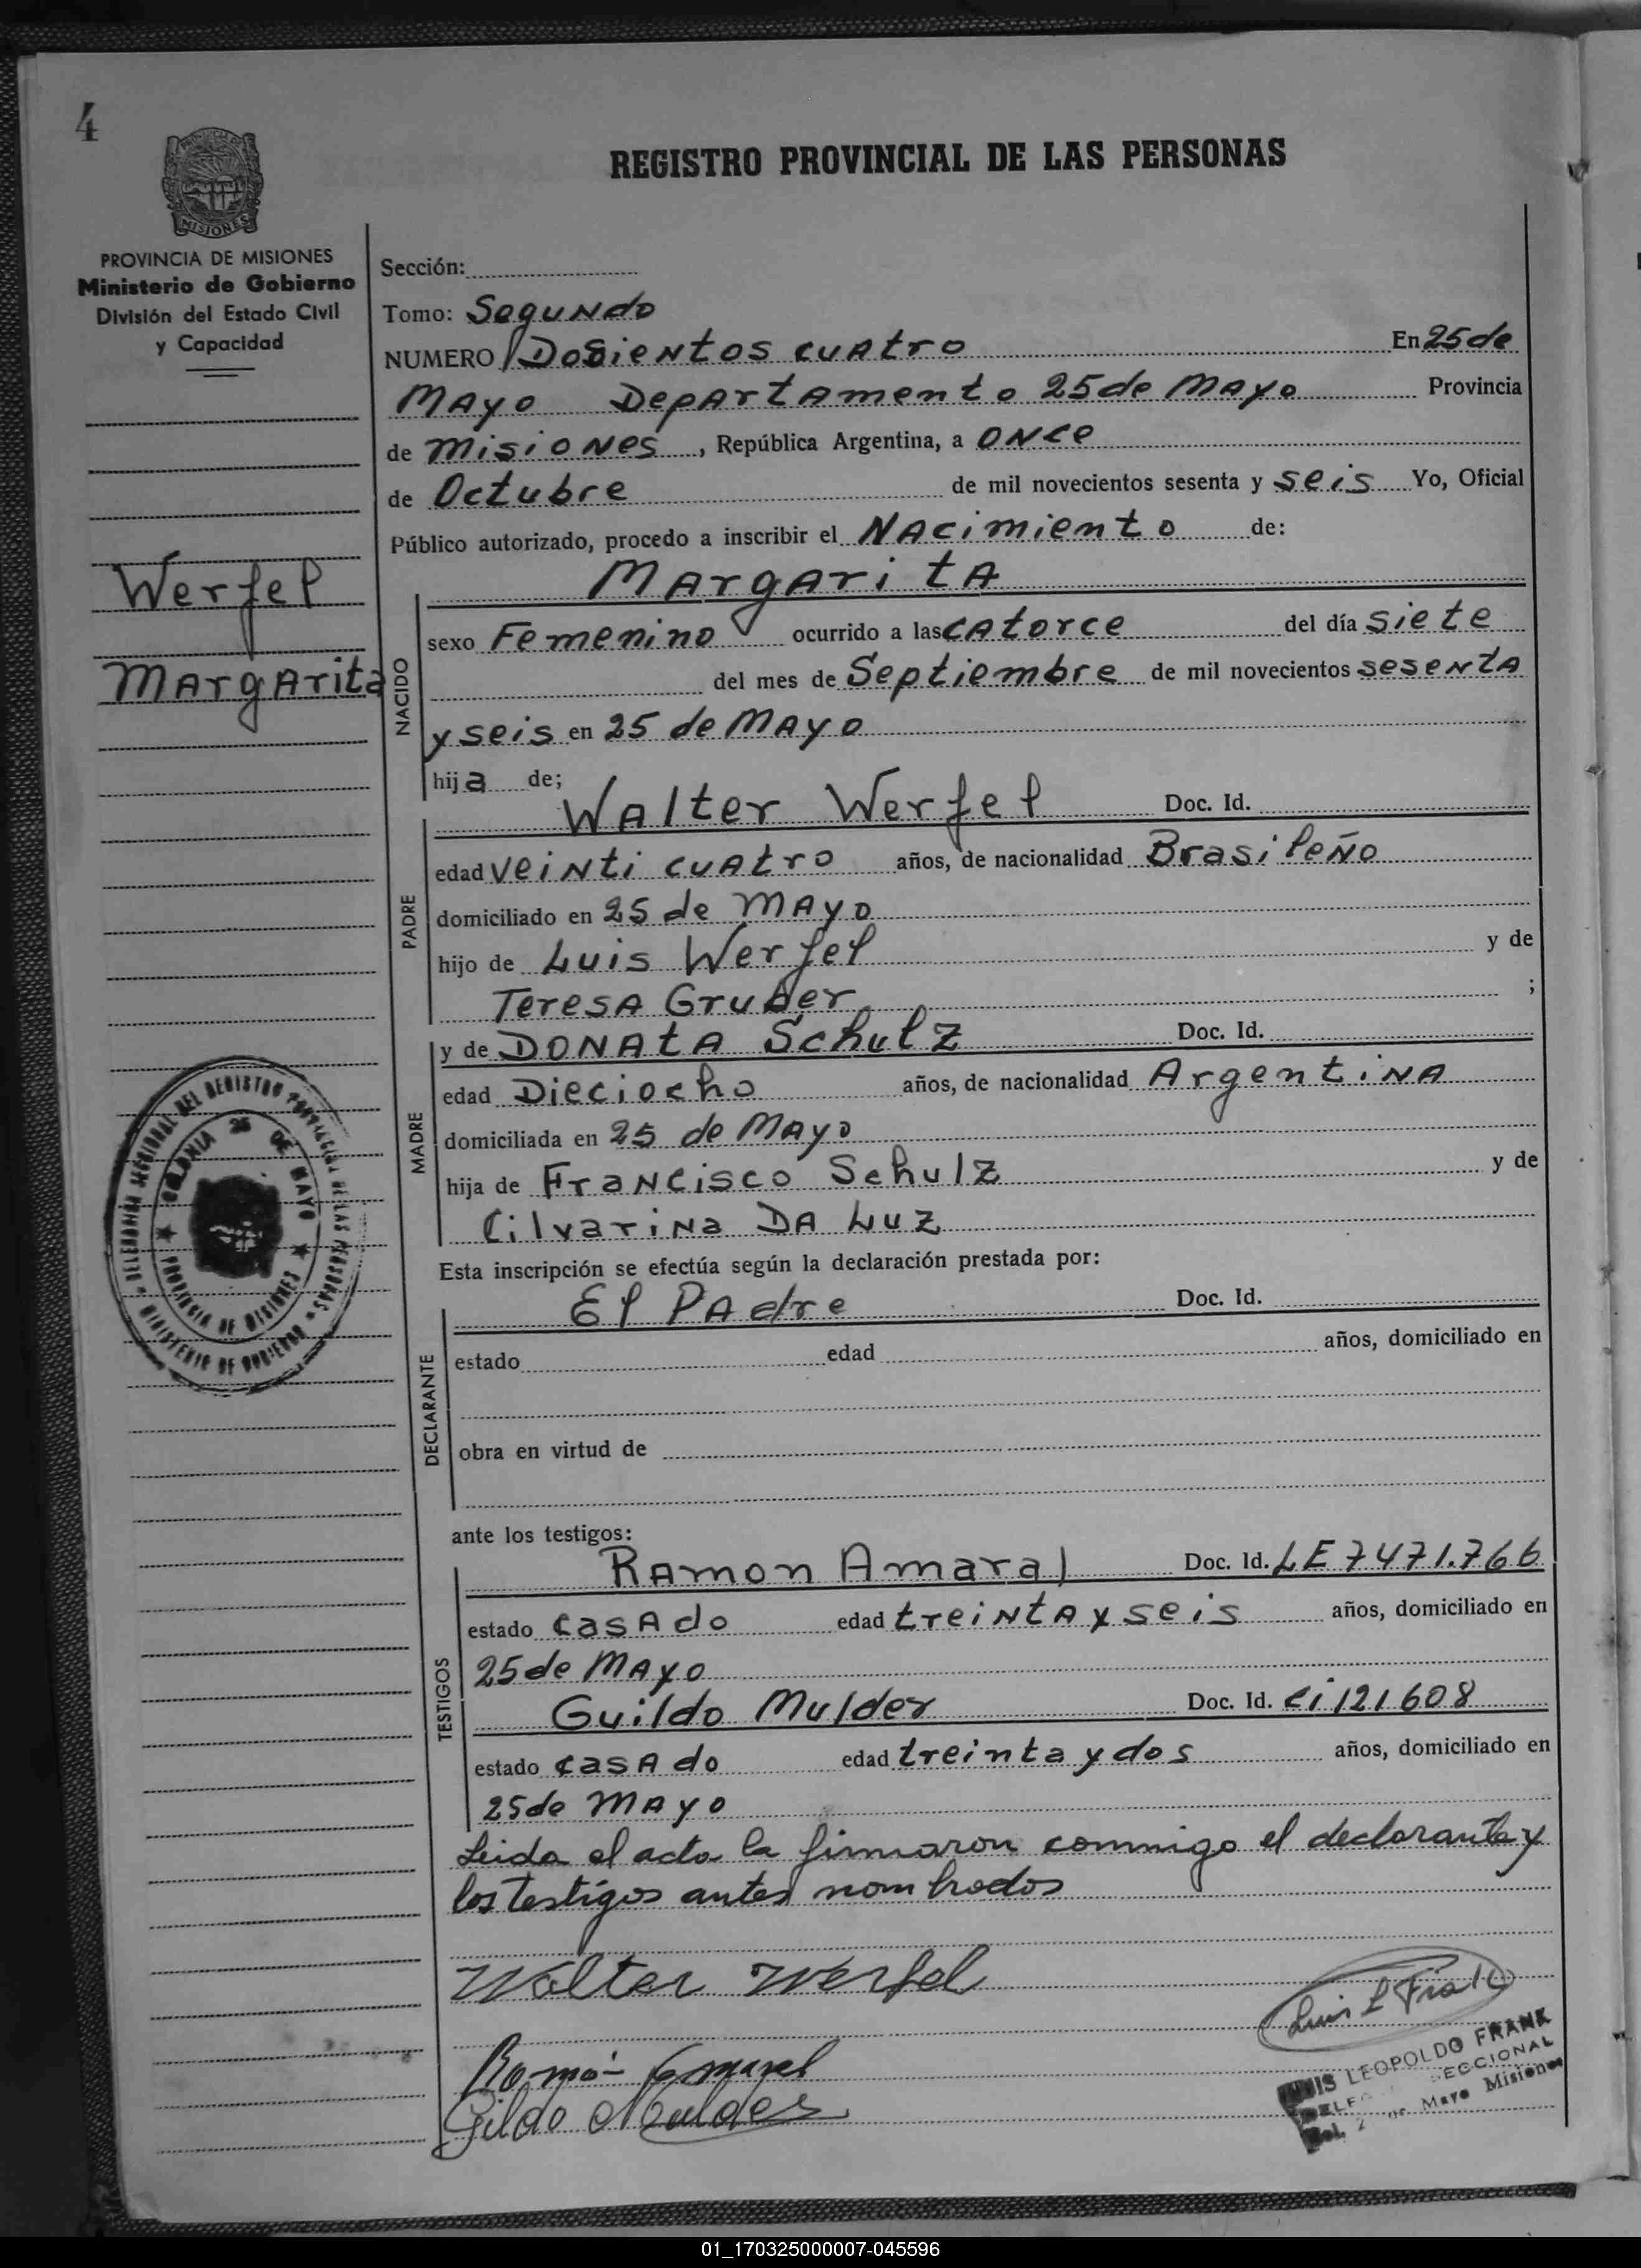 4
REGISTRO PROVINCIAL DE LAS PERSONAS
MISIONES
PROVINCIA DE MISIONES
Ministerio de Gobierno
División del Estado Civil
y Capacidad
Werfel
Margarita
Sección:
Tomo: Segundo
NUMERO Dosientos cuatro En 25 de
Mayo Departamento 25 de Mayo Provincia
de misiones, República Argentina, a once
de Octubre de mil novecientos sesenta y seis Yo, Oficial
Público autorizado, procedo a inscribir el Nacimiento de:
NACIDO
Margarita
sexo Femenino ocurrido a las catorce del día siete
del mes de Septiembre de mil novecientos sesenta
y seis en 25 de Mayo
hija de;
PADRE
Walter Werfel Doc. Id.
edad veinti cuatro años, de nacionalidad Brasileño
domiciliado en 25 de Mayo
hijo de Luis Werfel y de
Teresa Gruber ;
MADRE
y de Donata Schulz Doc. Id.
edad Dieciocho años, de nacionalidad Argentina
domiciliada en 25 de Mayo
hija de Francisco Schulz y de
Cilvarina Da Luz
Esta inscripción se efectúa según la declaración prestada por:
DECLARANTE
El Padre Doc. Id.
estado edad años, domiciliado en
obra en virtud de
ante los testigos:
TESTIGOS
Ramon Amaral Doc. Id. LE 7471.766
estado casado edad treinta y seis años, domiciliado en
25 de Mayo
Guildo Mulder Doc. Id. Ci 121608
estado casado edad treinta y dos años, domiciliado en
25 de Mayo
Leida el acta la firmaron commigo el declarante y
los testigos antes nombrados
Walter Werfel
Luis L Frank
Gildo Mulder
LUIS LEOPOLDO FRANK
SECCIONAL
de Mayo Misiones
DELEGACION REGIONAL DEL REGISTRO PROVINCIAL DE LAS PERSONAS
MINISTERIO DE GOBIERNO
COLONIA 25 DE MAYO
PROVINCIA DE MISIONES
01_170325000007-045596